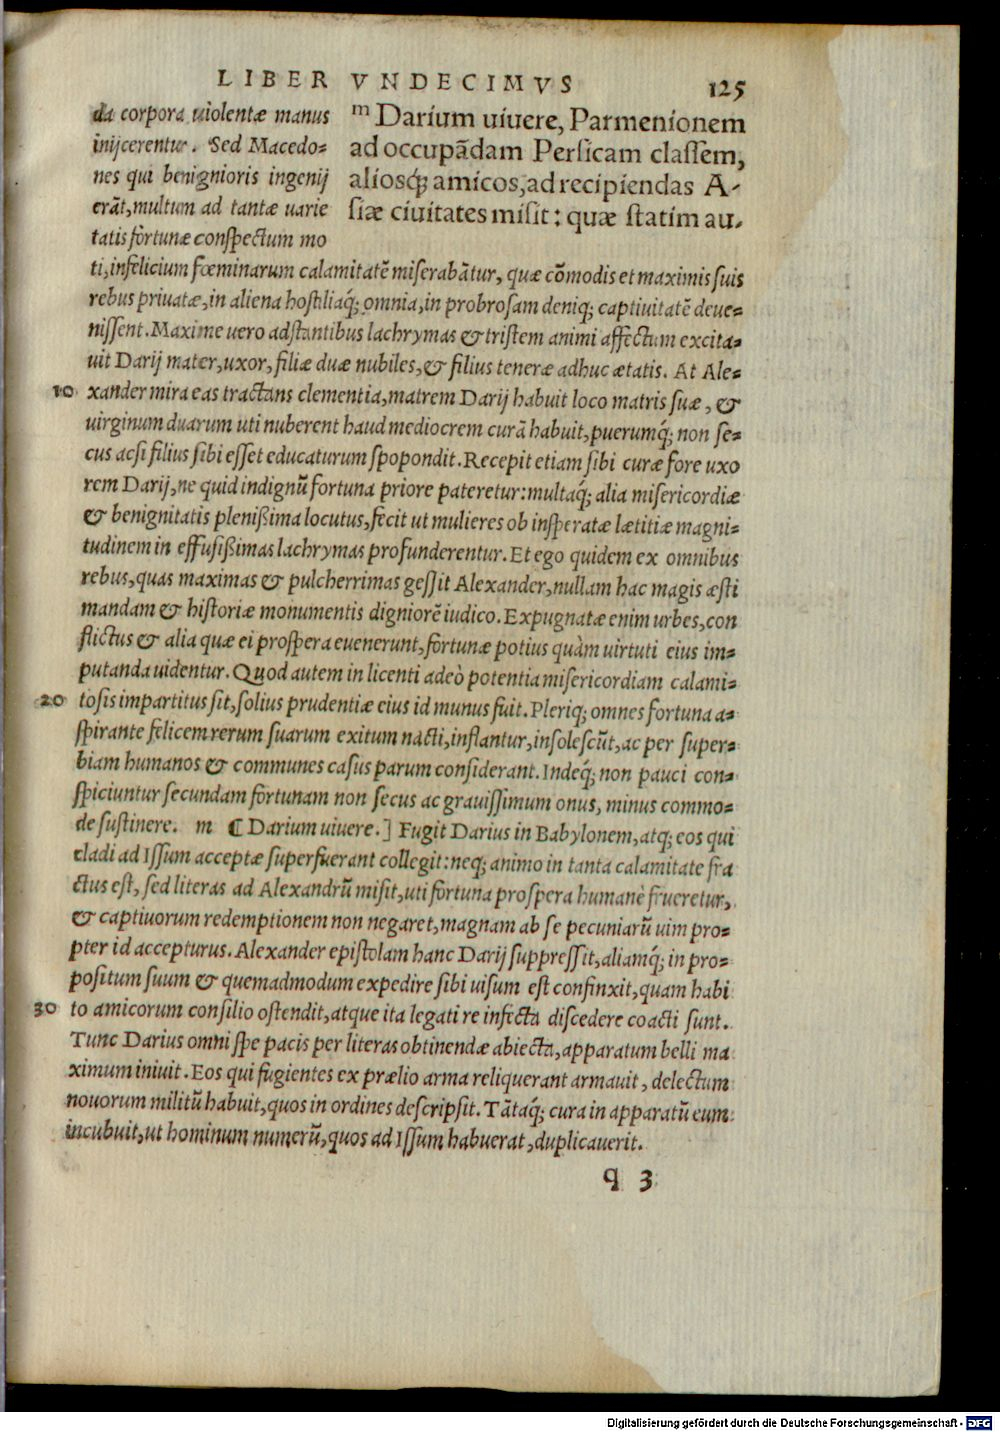 LIBER VNDECIMVS 125
ᵐ Darium uiuere, Parmenionem
ad occupādam Persicam classem,
aliosq́; amicos, ad recipiendas A-
siæ ciuitates misit: quæ statim au-
da corpora uiolentæ manus
inijcerentur. Sed Macedo=
nes qui benignioris ingenij
erāt, multum ad tantæ uarie
tatis fortunæ conspectum mo
ti, infelicium fœminarum calamitatē miserabātur, quæ cōmodis et maximis suis
rebus priuatæ, in aliena hostiliaq́; omnia, in probrosam deniq; captiuitatē deue=
nissent. Maxime uero adstantibus lachrymas & tristem animi affectum excita=
uit Darij mater, uxor, filiæ duæ nubiles, & filius teneræ adhuc ætatis. At Ale=
10 xander mira eas tractans clementia, matrem Darij habuit loco matris suæ, &
uirginum duarum uti nuberent haud mediocrem curā habuit, puerumq́; non se=
cus acsi filius sibi esset educaturum spopondit. Recepit etiam sibi curæ fore uxo
rem Darij, ne quid indignū fortuna priore pateretur: multaq́; alia misericordiæ
& benignitatis plenißima locutus, fecit ut mulieres ob insperatæ lætitiæ magni=
tudinem in effusißimas lachrymas profunderentur. Et ego quidem ex omnibus
rebus, quas maximas & pulcherrimas gessit Alexander, nullam hac magis æsti
mandam & historiæ monumentis digniorē iudico. Expugnatæ enim urbes, con
flictus & alia quæ ei prospera euenerunt, fortunæ potius quàm uirtuti eius im=
putanda uidentur. Quod autem in licenti adeò potentia misericordiam calami=
20 tosis impartitus sit, solius prudentiæ eius id munus fuit. Pleriq; omnes fortuna a=
spirante felicem rerum suarum exitum nacti, inflantur, insolescūt, ac per super=
biam humanos & communes casus parum considerant. Indeq́; non pauci con=
spiciuntur secundam fortunam non secus ac grauissimum onus, minus commo=
de sustinere. m ⁋ Darium uiuere.] Fugit Darius in Babylonem, atq; eos qui
cladi ad Issum acceptæ superfuerant collegit: neq; animo in tanta calamitate fra
ctus est, sed literas ad Alexandrū misit, uti fortuna prospera humanè frueretur,
& captiuorum redemptionem non negaret, magnam ab se pecuniarū uim pro=
pter id accepturus. Alexander epistolam hanc Darij suppressit, aliamq́; in pro=
positum suum & quemadmodum expedire sibi uisum est confinxit, quam habi
30 to amicorum consilio ostendit, atque ita legati re infecta discedere coacti sunt.
Tunc Darius omni spe pacis per literas obtinendæ abiecta, apparatum belli ma
ximum iniuit. Eos qui fugientes ex prælio arma reliquerant armauit, delectum
nouorum militū habuit, quos in ordines descripsit. Tātaq́; cura in apparatū eum
incubuit, ut hominum numerū, quos ad Issum habuerat, duplicauerit.
q 3
Digitalisierung gefördert durch die Deutsche Forschungsgemeinschaft - DFG